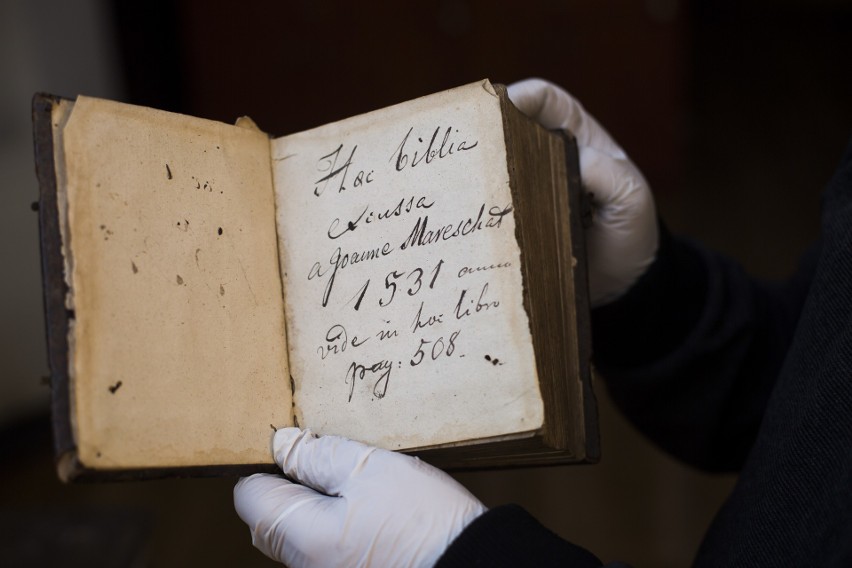 Hoc biblia
excussa
a Joanne Mareschal
1531 anno
vide in hoc libro
pag: 508.